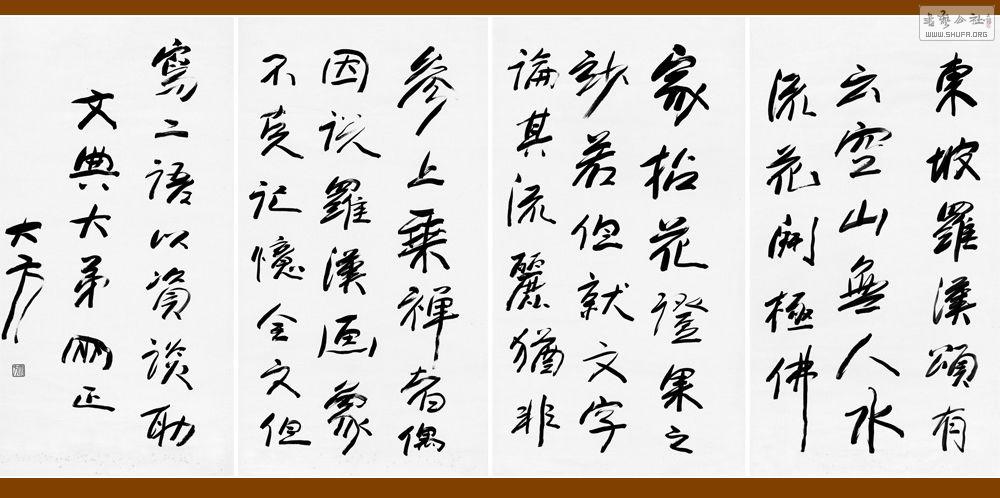 東坡羅漢頌有
云空山無人水
流花開極佛
家拈花證果之
妙若但就文字
論其流麗猶非
參上乘禪者偶
因說羅漢画象
不克記憶全文但
寫二語以資談助
文典大弟正
大方
書藝公社
WWW.SHUFA.ORG